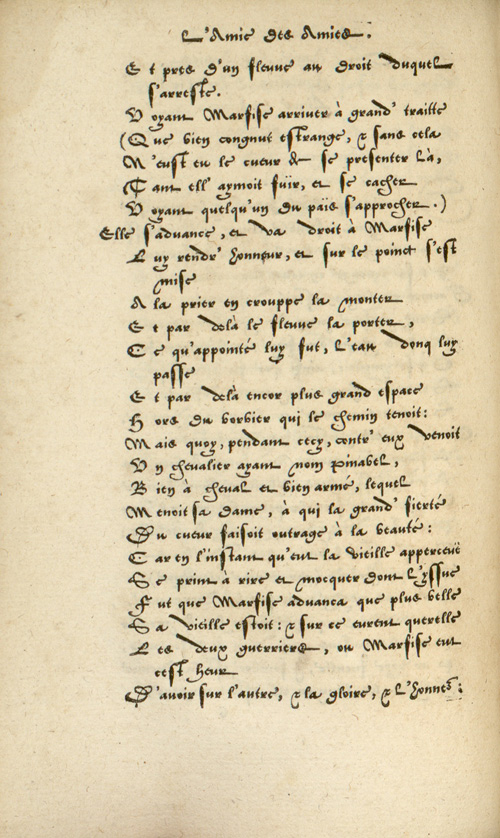 L'Amie des Amies.
Et pres d'un fleuve au droit duquel
s'arreste.
Voyant Marfise arriver à grand' traitte
(Que bien congnut estrange, & sans cela
N'eust eu le cueur de se presenter là,
Tant ell' aymoit fuïr, et se cacher
Voyant quelqu'un du païs s'approcher.)
Elle s'advance, et va droit à Marfise
Luy rendr' honneur, et sur le poinct s'est
mise
A la prier en crouppe la monter
Et par delà le fleuve la porter,
Ce qu'appointé luy fut, L'eau donq luy
passe
Et par delà encor plus grand espace
Hors du borbier qui le chemin tenoit:
Mais quoy, pendant cecy, contr' eux venoit
Un chevalier ayant nom Pinabel,
Bien à cheval et bien armé, lequel
Menoit sa dame, à qui la grand' fierté
Du cueur faisoit outrage à la beauté:
Car en l'instant qu'eut la vieille apperceuë
Se print à rire et mocquer dont L'yssue
Fut que Marfise advança que plus belle
Sa vieille estoit: & sur ce eurent querelle
Les deux guerriers, ou Marfise eut
cest heur
D'avoir sur l'autre, & la gloire, & L'honneʳ: